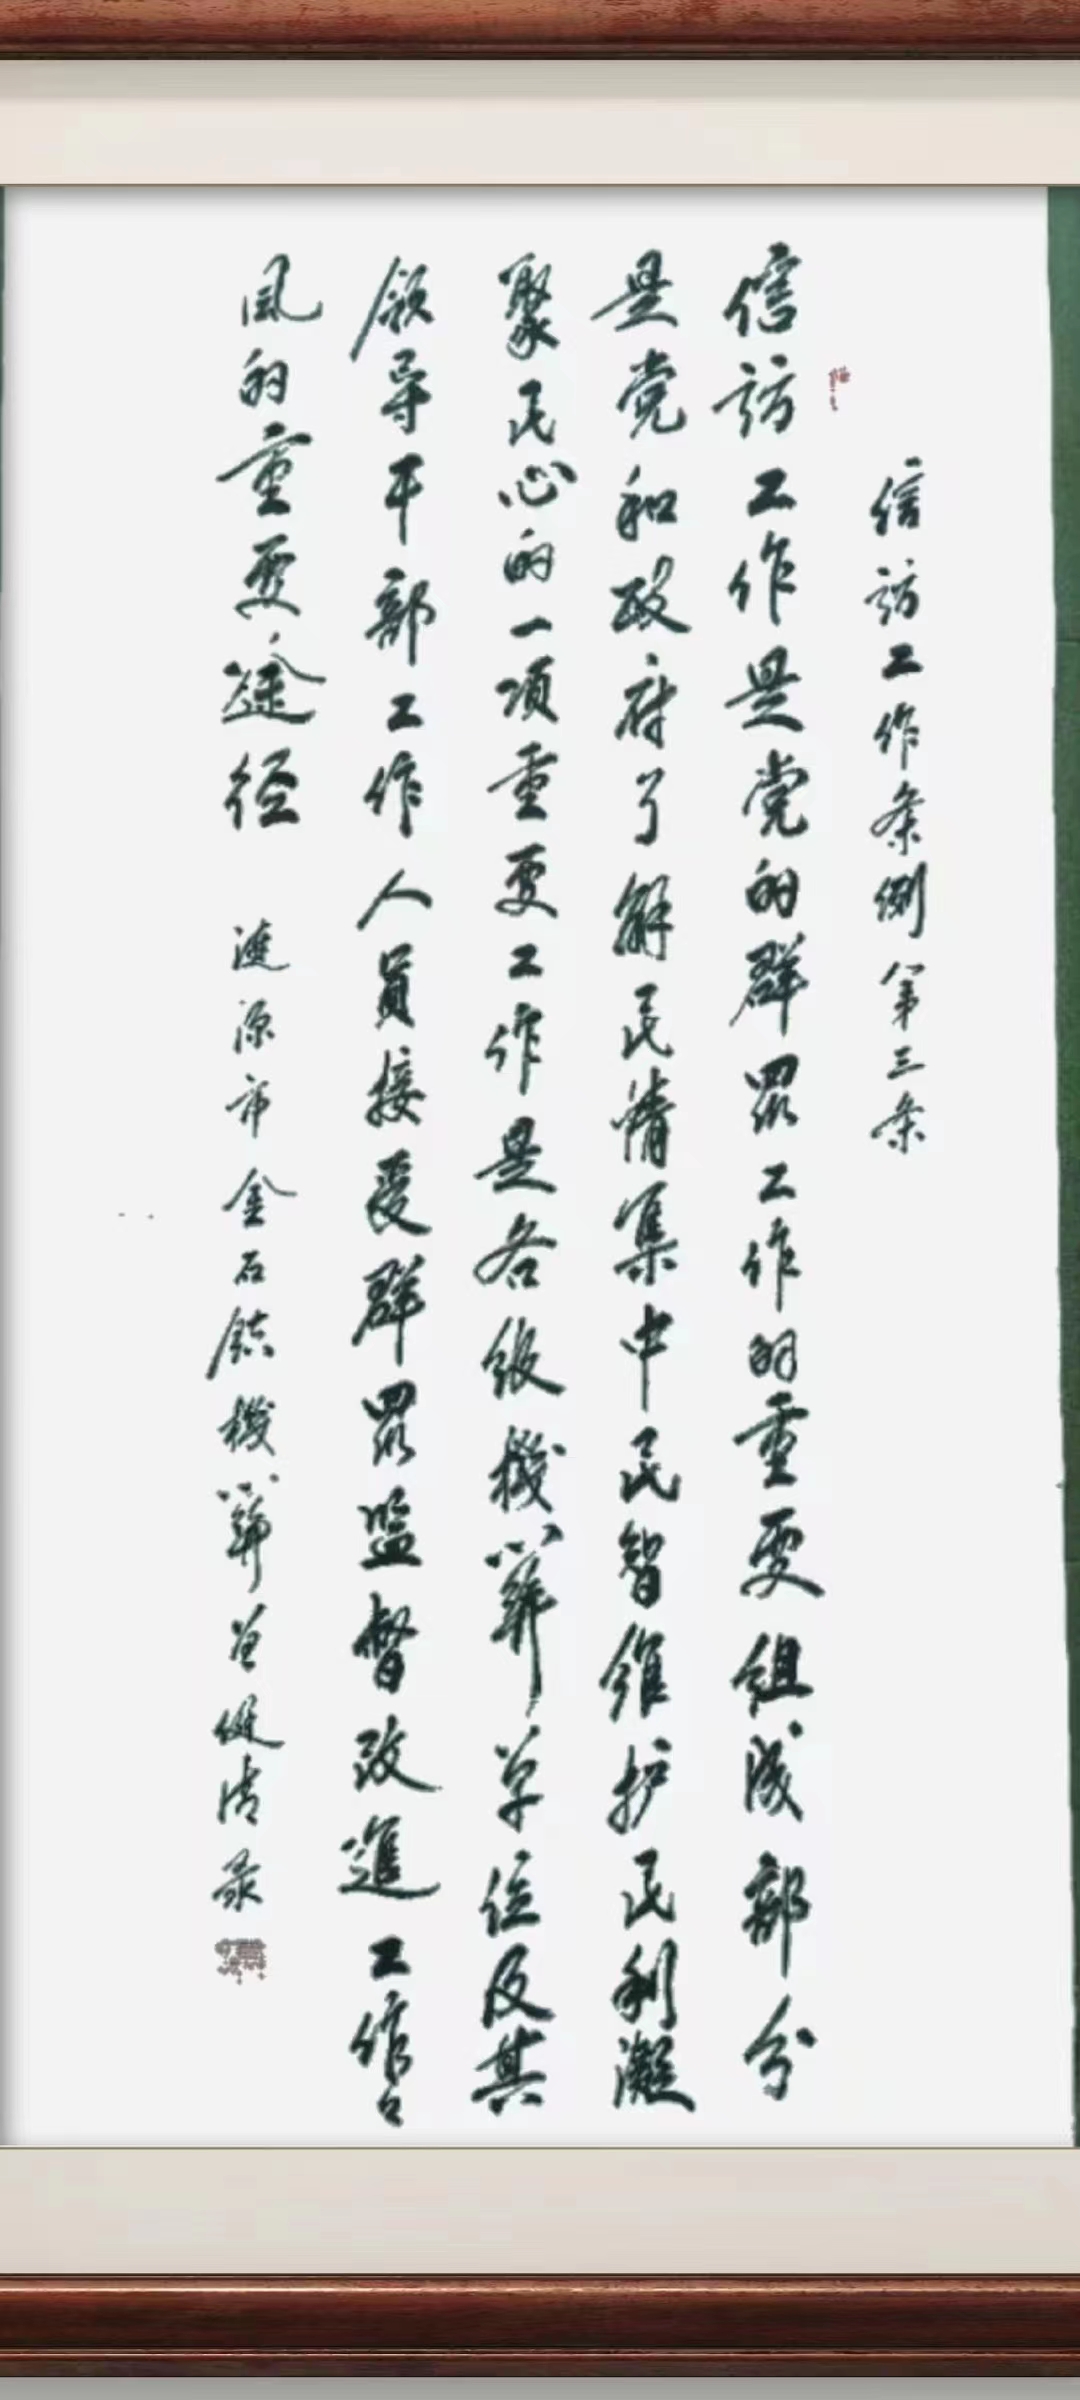 信访工作条例第三条
信访工作是党的群眾工作的重要组成部分
是党和政府了解民情集中民智维护民利凝
聚民心的一项重要工作是各级機關单位及其
领导干部工作人員接受群眾监督改進工作作
風的重要途径
涟源市金石鎮機關
清录